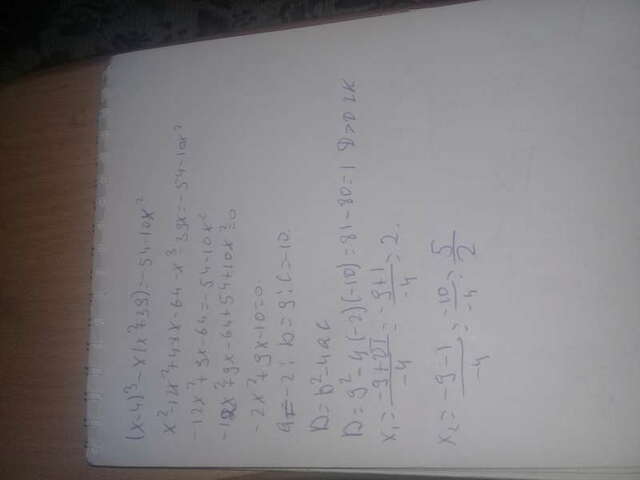 (x-4)³-x(x²+39)=-54-10x²
x²-12x²+48x-64-x³-39x=-54-10x²
-12x²+9x-64=-54-10x²
-12x²+9x-64+54+10x²=0
-2x²+9x-10=0.
a=-2; b=9; c=-10.
D=b²-4ac
D=9²-4(-2)(-10)=81-80=1 D>0 2K
x₁=(-9+√1)/-4=(-9+1)/-4=2.
x₂=(-9-1)/-4=-10/-4=5/2